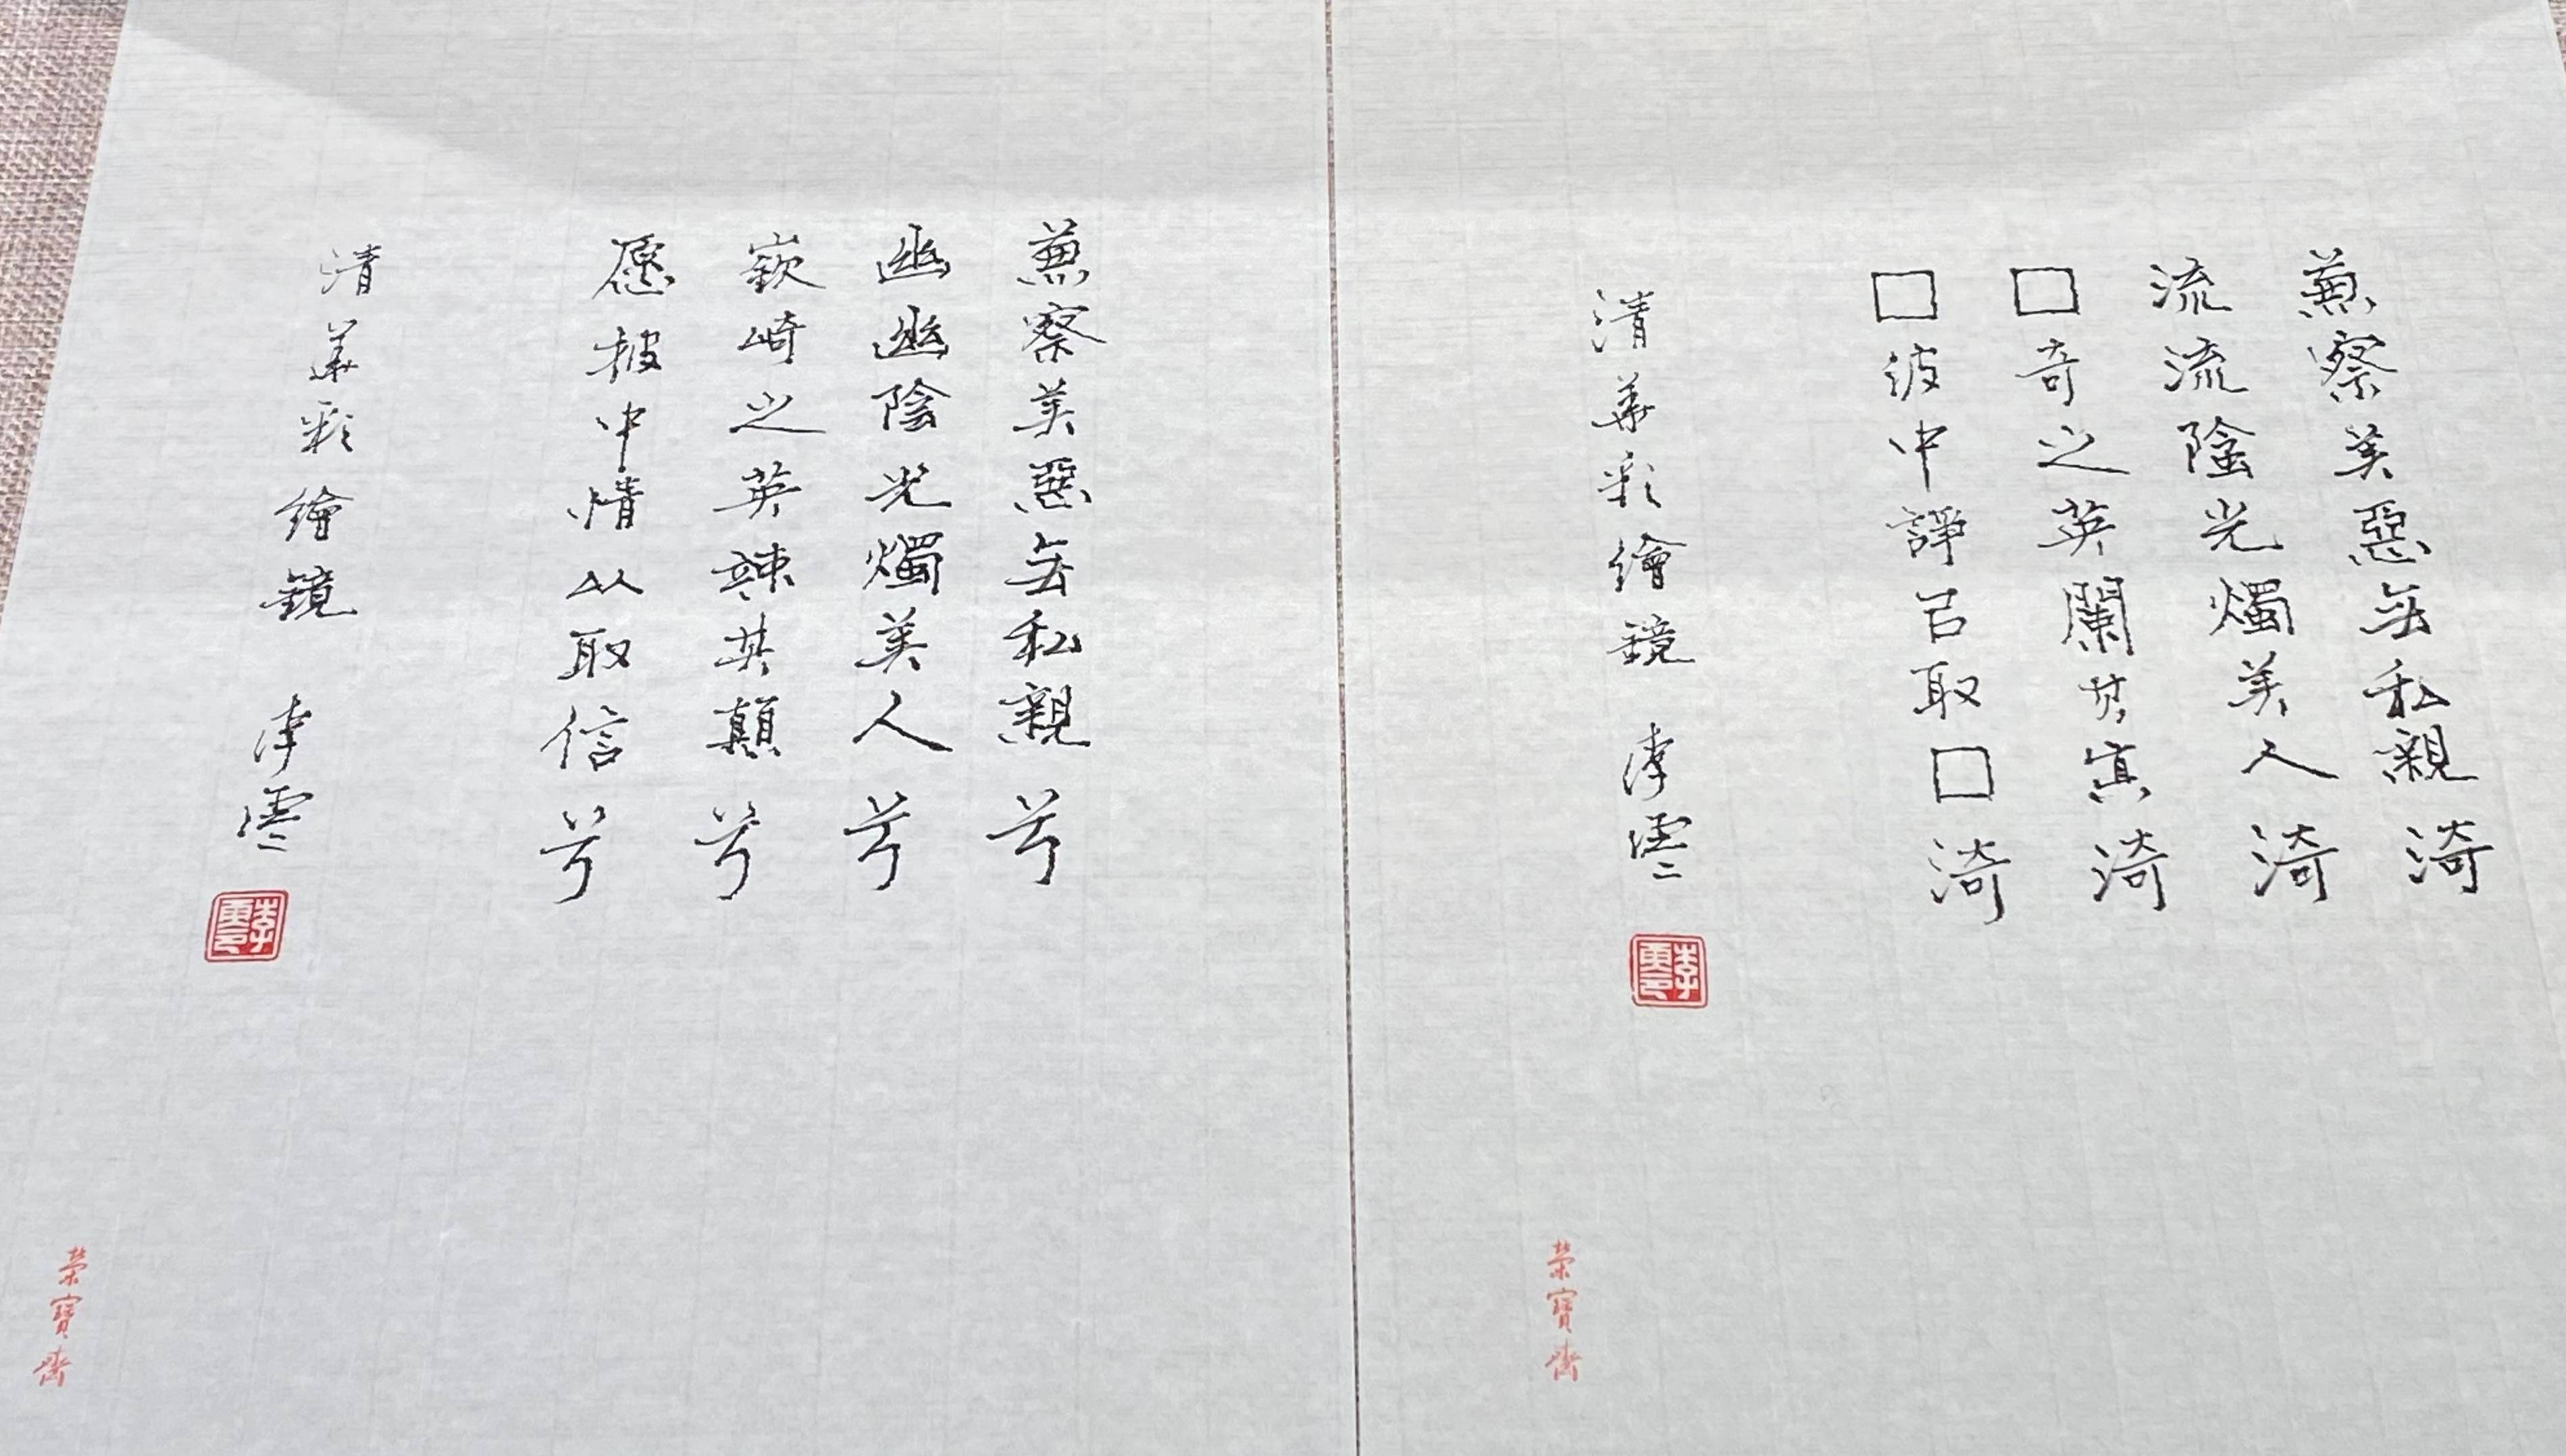 兼察美惡無私親渏
流流陰光燭美人渏
□奇之英闌其寘渏
□彼中諍㠯取□渏
清華彩繪鏡 李零
榮寶齋
兼察美惡無私親兮
幽幽陰光燭美人兮
嶔崎之英竦其顛兮
愿披中情以取信兮
清華彩繪鏡 李零
榮寶齋